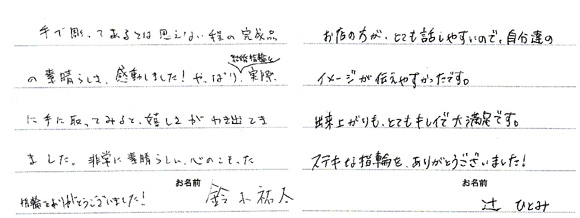 手で彫ってあるとは思えない程の完成品
の素晴らしさ、感動しました！やっぱり、実際
結婚指輪を
に手に取ってみると、嬉しさがわき出てき
ました。非常に素晴らしい、心のこもった
指輪をありがとうございました！
お名前
鈴木祐太
お店の方が、とても話しやすいので、自分達の
イメージが伝えやすかったです。
出来上がりも、とてもキレイで大満足です。
ステキな指輪を、ありがとうございました！
お名前
辻 ひとみ